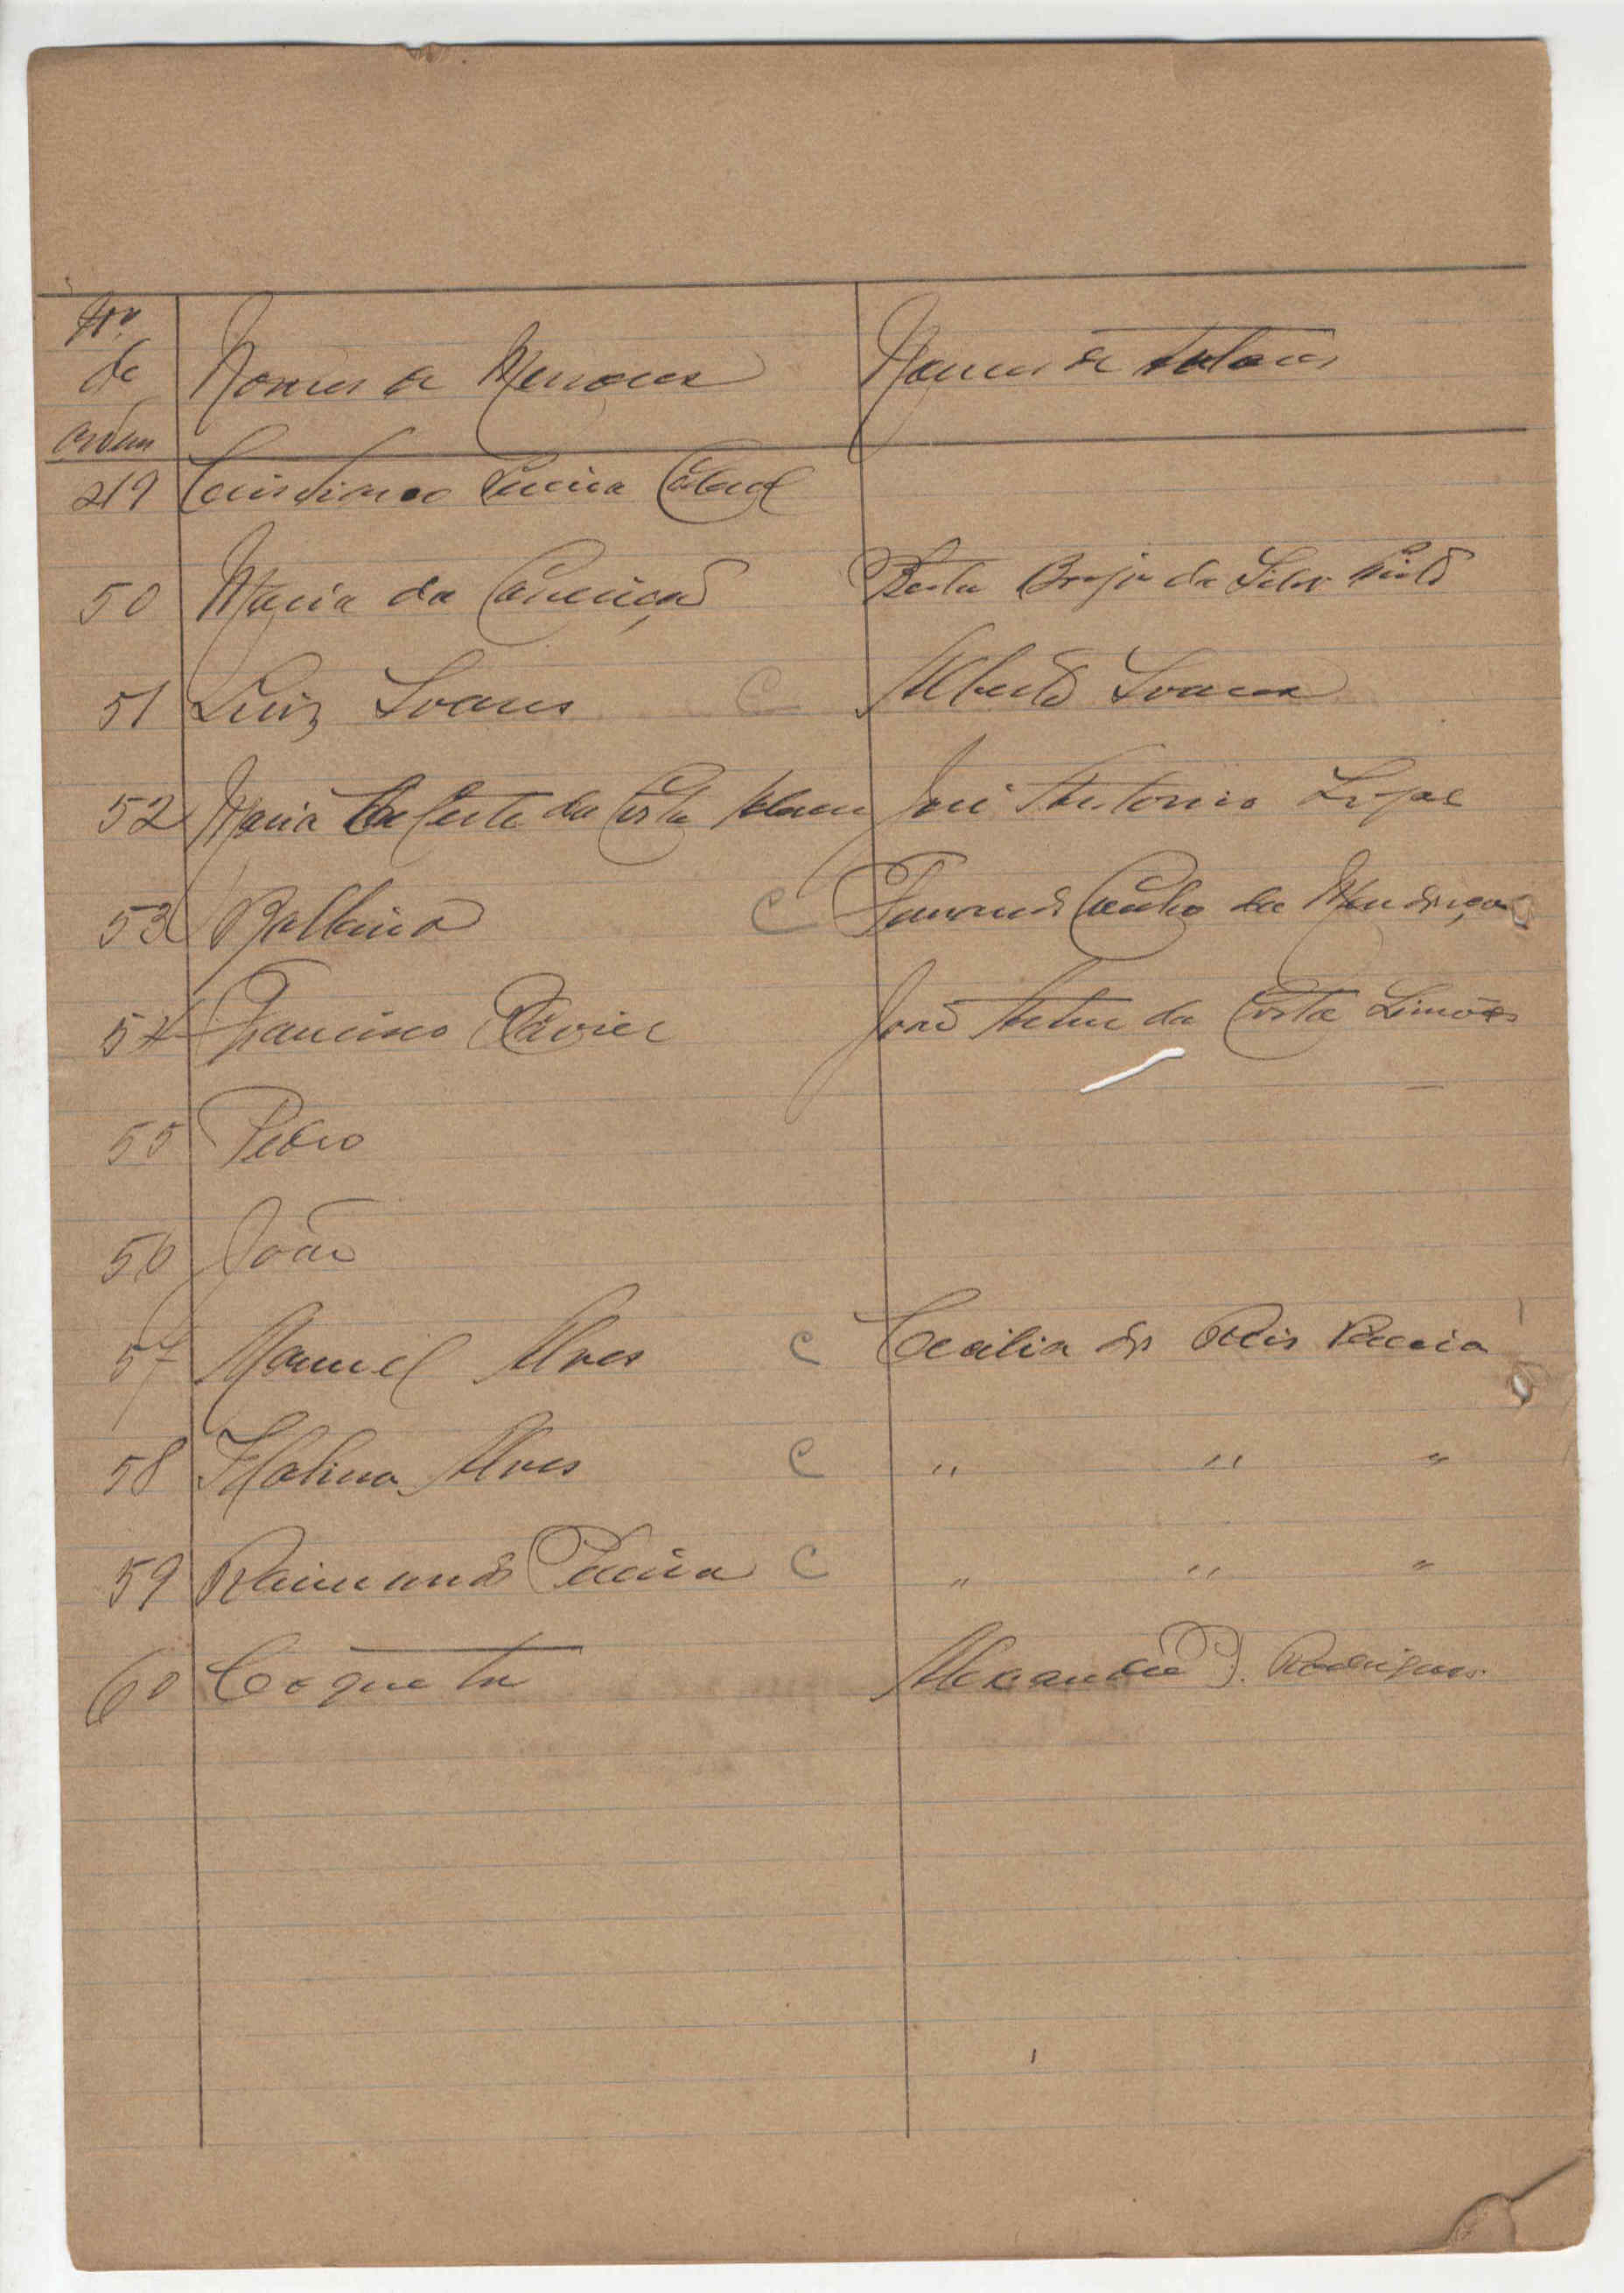 Nº
de
ordem
Nomes de Menores
Nomes de tutores
49 Cristiano Pereira Cabral
50 Maria da Conceição
Berta Silva Pinto
51 Luiz Soares C
Alberto Soares
52 Maria Celeste da Costa
José Antonio Lopes
53 Balbina C
Fernando Coelho de Mendonça
54 Francisco Xavier
João Artur da Costa Limões
55 Pedro
56 João
57 Manuel Alves C
Cecilia dos Reis Pereira
58 Alves C
" " "
59 Raimundo Pereira C
" " "
60 Coqueta
Alexandre J. Rodrigues